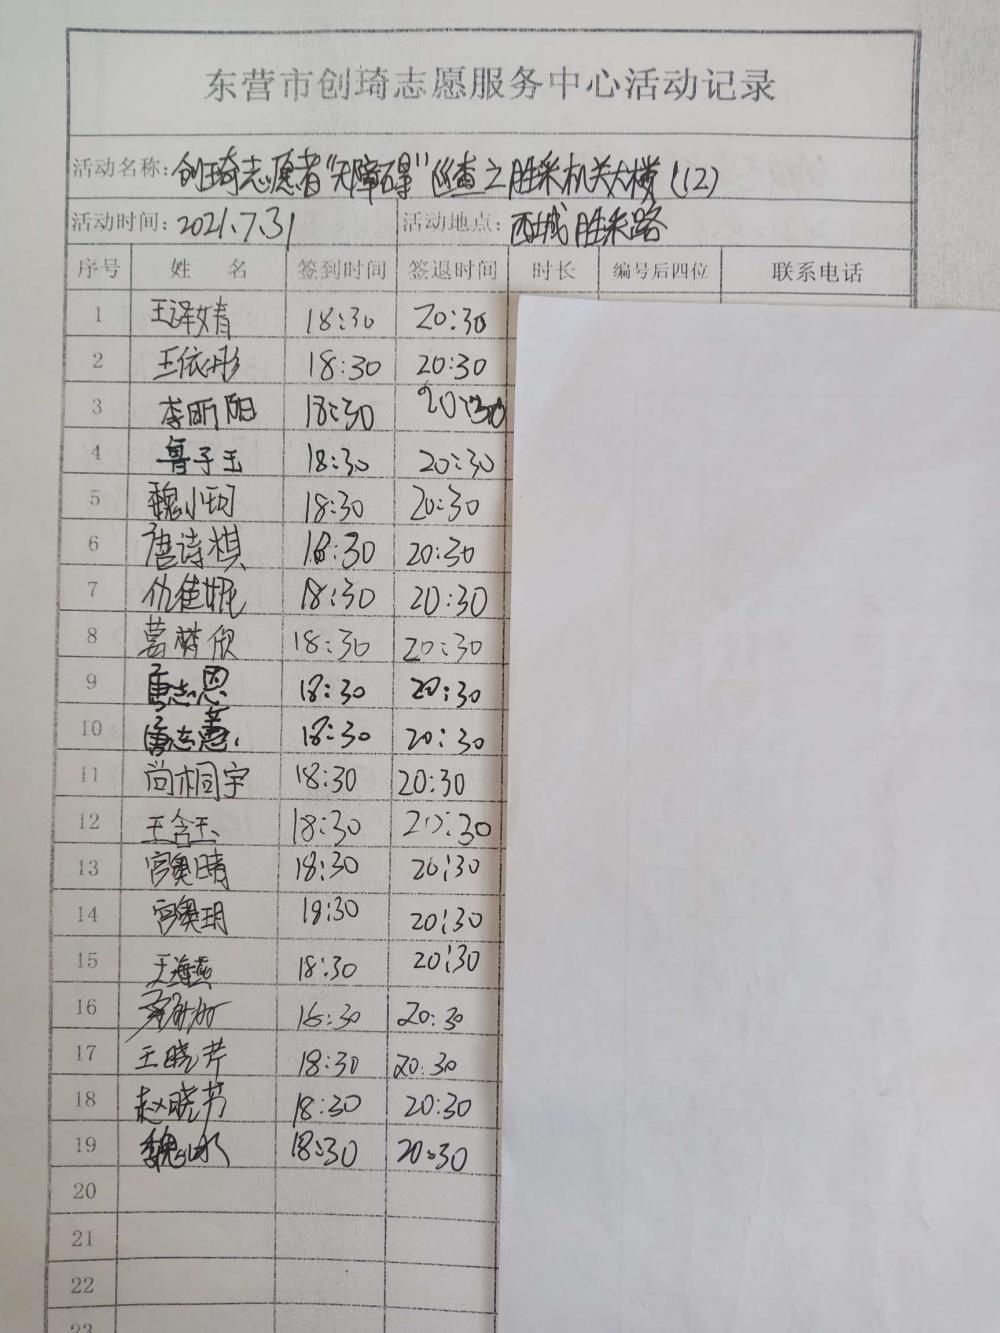 东营市创琦志愿服务中心活动记录
活动名称: 创琦志愿者“无障碍”巡查之胜采机关大楼(12)
活动时间: 2021.7.31 活动地点: 西城胜采路
序号 姓 名 签到时间 签退时间 时长 编号后四位 联系电话
1 王泽婧 18:30 20:30
2 王依彤 18:30 20:30
3 李昕阳 18:30 20:30
4 鲁子玉 18:30 20:30
5 魏小珂 18:30 20:30
6 唐诗棋 18:30 20:30
7 仇佳妮 18:30 20:30
8 葛梦欣 18:30 20:30
9 唐志恩 18:30 20:30
10 唐志 18:30 20:30
11 尚桐宇 18:30 20:30
12 王含玉 18:30 20:30
13 宫奥晴 18:30 20:30
14 宫奥玥 18:30 20:30
15 王海燕 18:30 20:30
16 18:30 20:30
17 王晓芹 18:30 20:30
18 赵晓芳 18:30 20:30
19 魏 18:30 20:30
20
21
22
23